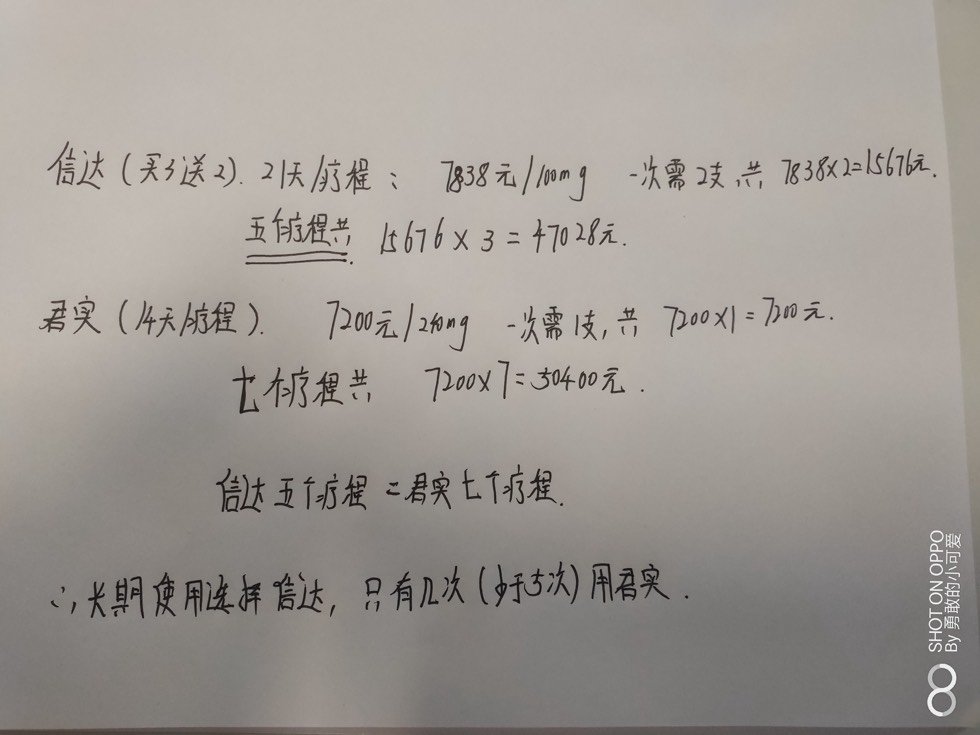 信达(买3送2). 21天/疗程: 7838元/100mg 一次需2支,共 7838×2=15676元.
五个疗程共 15676×3=47028元.
君实(14天/疗程). 7200元/240mg 一次需1支,共 7200×1=7200元.
七个疗程共 7200×7=50400元.
信达五个疗程=君实七个疗程.
∴长期使用选择信达,只有几次(少于5次)用君实.
SHOT ON OPPO
By 勇敢的小可爱